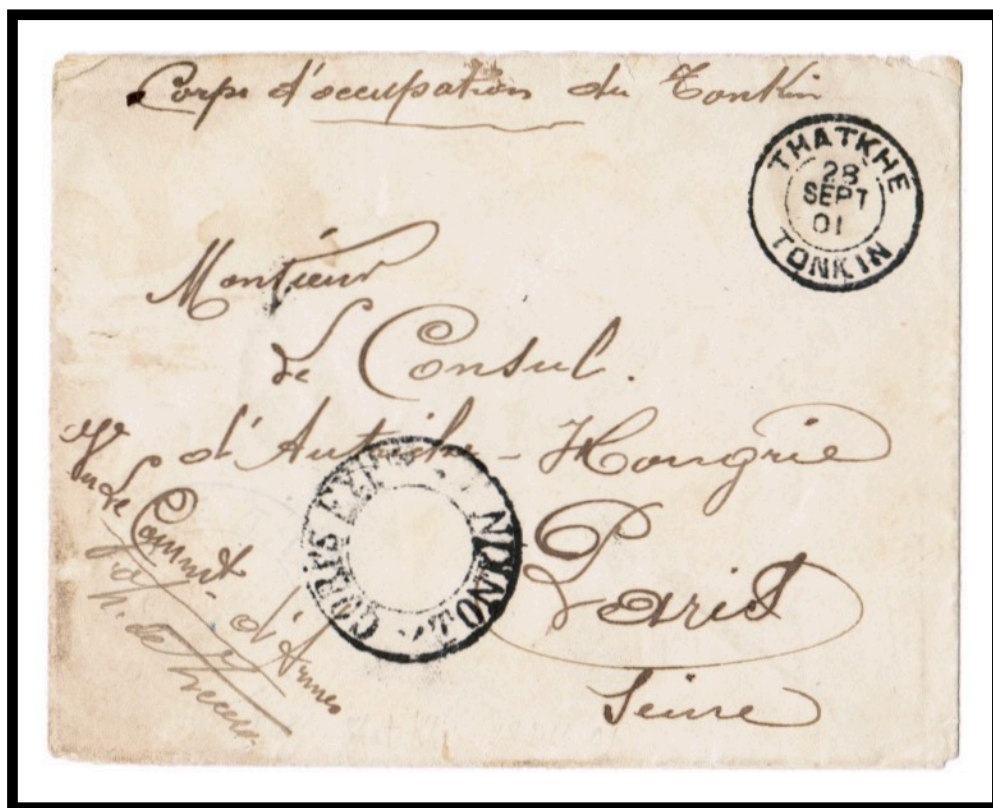 Corps d'occupation du Tonkin
THATKHE
28
SEPT
01
TONKIN
Monsieur
Le Consul.
d'Autriche-Hongrie
Paris
Seine
CORPS TONKIN
Vu Le Commt
d'Armes